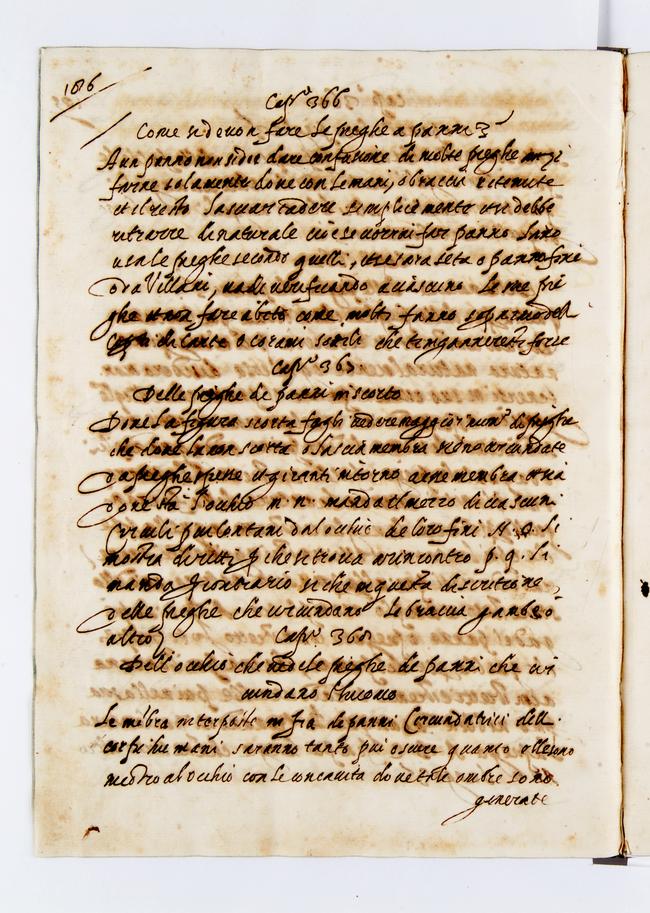 186
Cap.º 366
Come si devon fare le pieghe a panni
A un panno non si dee dare confusione di molte pieghe anzi
farne solamente dove con le mani, o braccia ritenute
et il resto lasciar cadere semplicemente et si debbe
ritrarre di naturale cioè se vorrai far panno lano
usa le pieghe secondo quelli, et se sarà seta o panno fini
o da Villani, va diversificando a ciascuno le sue pie
ghe et non fare abito come molti fanno sopra modelli
di carte o corami sottili che t'inganneresti forte
Cap.º 367
Delle pieghe de panni in scorto
Dove la figura scorta fagli vedere maggior num.º di pieghe
che dove la non scorta o la sua membra sieno circundate
da pieghe spesse et giranti intorno a esse membra
dove sta l'occhio n. n. manda il mezzo di ciascuni
circuli piu lontani dal occhio de loro fini
mostra diritti che si trova a rincontro p. q. li
manda contrario si che in questa discritione
delle pieghe che circundano le braccia gambe o
altro
Cap.º 368
Dell'occhio che vede le pieghe de panni che cir
cundano l'huomo
Le mebra interposte in fra de panni circundatrici delli
corpi humani saranno tanto piu oscure quanto elle sono
incontro al occhio con le concavita dove tale ombre sono
generate